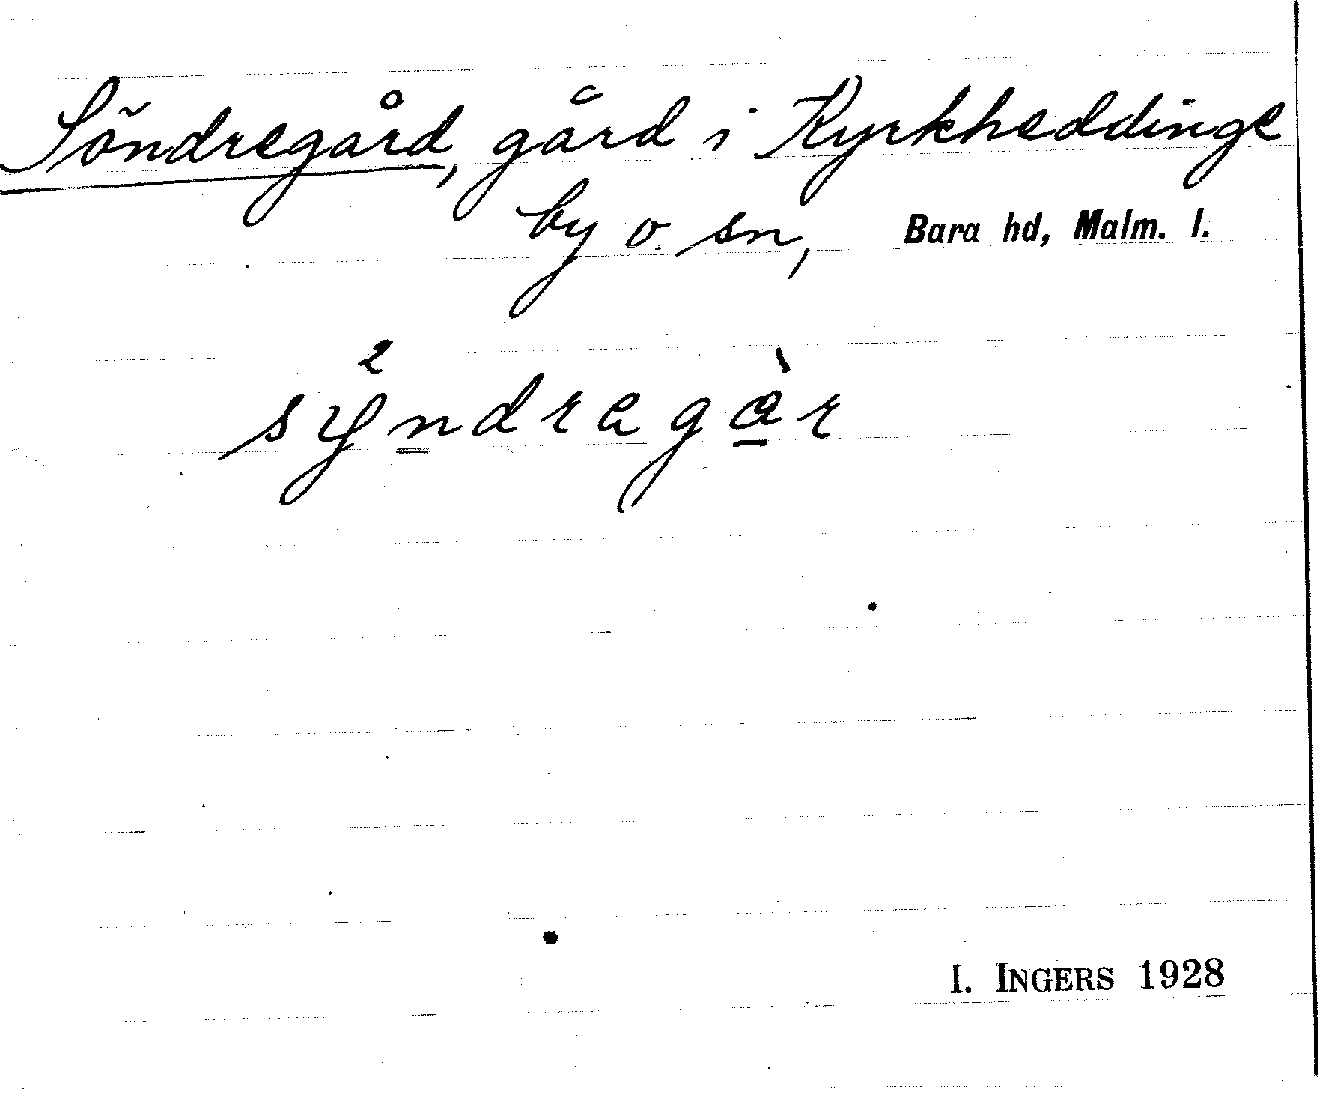 Söndregård, gård i Kyrkheddinge
by o sn, Bara hd, Malm. l.
sy²ndragàr
I. INGERS 1928